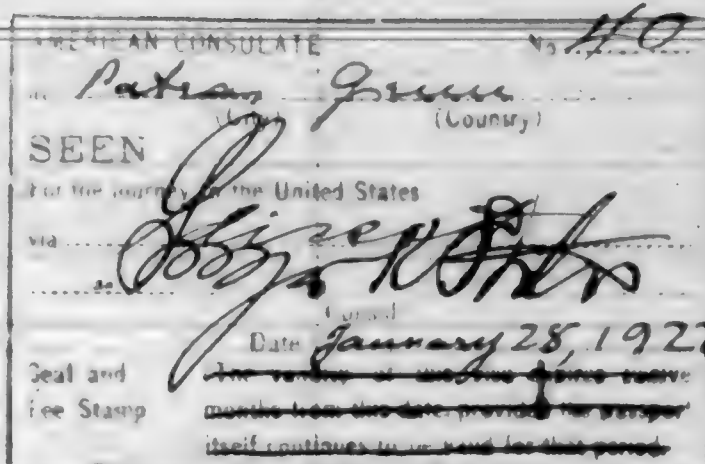 AMERICAN CONSULATE No. 40
at Patras, Greece
(City) (Country)
SEEN
For the journey to the United States
via Direct
Consul
Date January 28, 192
Seal and The validity of this visa expires twelve
Fee Stamp months from this date, provided the passport
itself continues to be valid for that period.